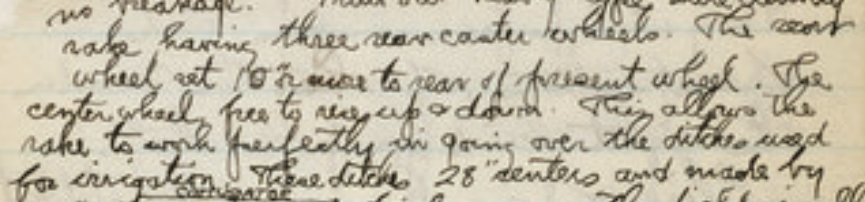 no breakage.
rake having three rear caster wheels. The rear
wheel set 10" more to rear of present wheel. The
center wheel, free to rise up & down. This allows the
rake to work perfectly in going over the ditches used
for irrigation. These ditches 28" centers and made by
corrugator